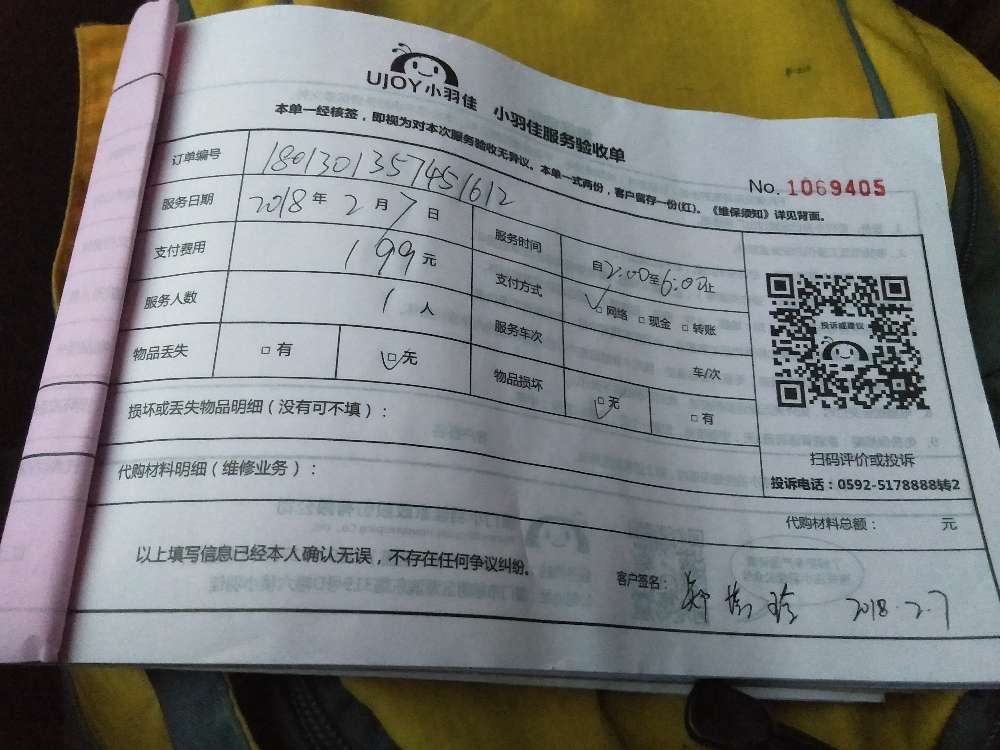 UJOY小羽佳 小羽佳服务验收单
本单一经核签，即视为对本次服务验收无异议。本单一式两份，客户留存一份(红)。《维保须知》详见背面。
No. 1069405
订单编号 180130135745​1612
服务日期 2018 年 2 月 7 日 服务时间 自2:00至6:00止
支付费用 199 元 支付方式 ☑网络 □现金 □转账
服务人数 1 人 服务车次 车/次
物品丢失 □有 ☑无 物品损坏 ☑无 □有
损坏或丢失物品明细（没有可不填）：
投诉或建议
扫码评价或投诉
投诉电话：0592-5178888转2
代购材料明细（维修业务）：
代购材料总额： 元
以上填写信息已经本人确认无误，不存在任何争议纠纷。
客户签名： 2018.2.7